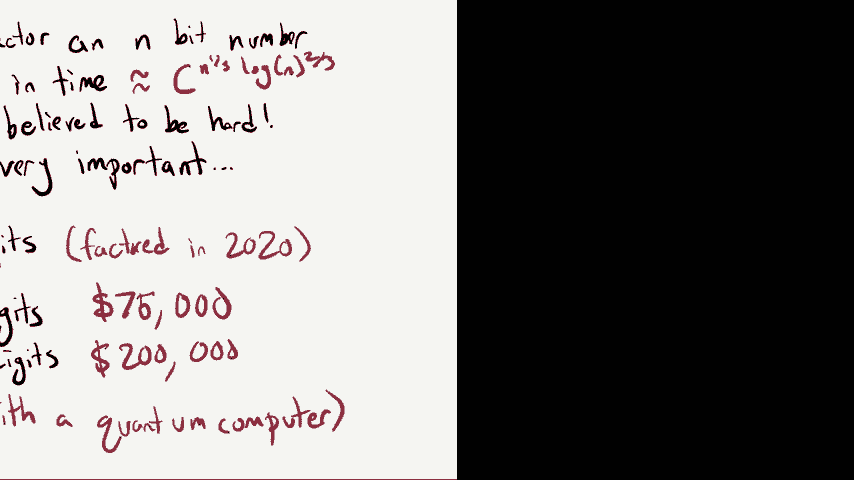 ctor an n bit number
in time ≈ C^{n^{1/3} log(n)^{2/3}}
believed to be hard!
very important...
its (factored in 2020)
gits $75,000
igits $200,000
ith a quantum computer)